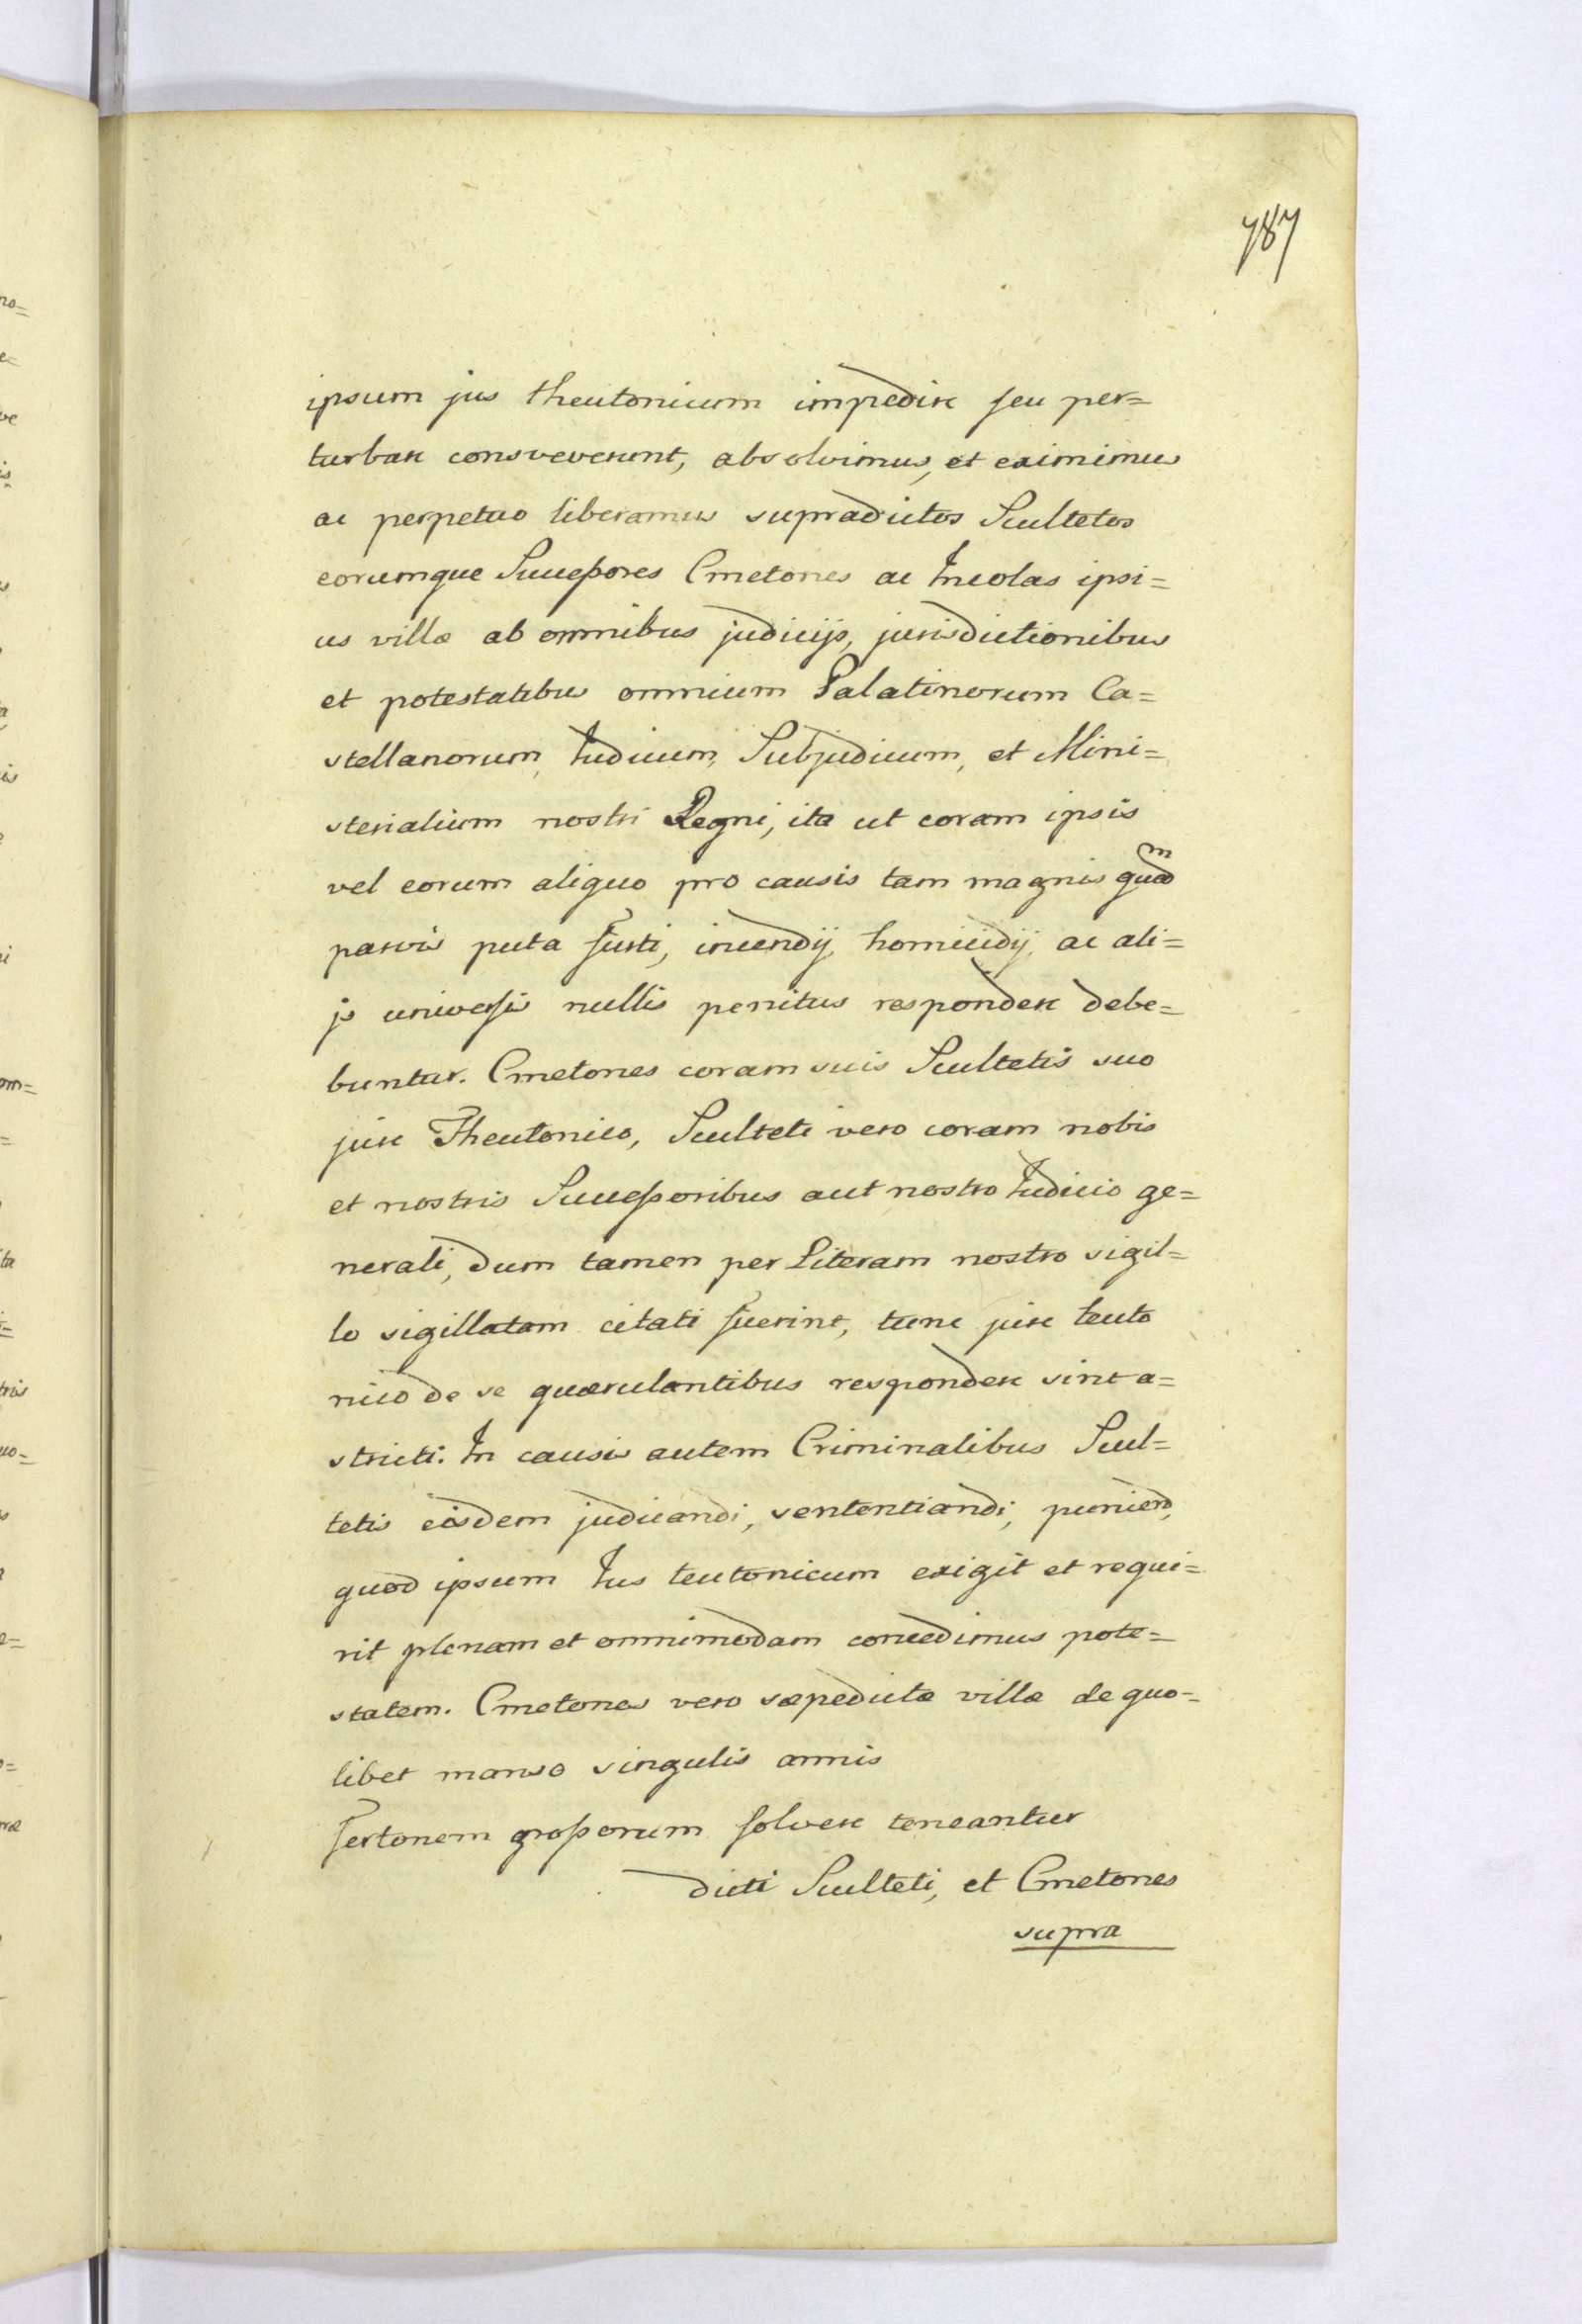 787
ipsum jus theutonicum impedire seu per=
turbare consveverunt, absolvimus, et eximimus
ac perpetuo liberamus supradictos Scultetos
eorumque Successores Cmetones ac Incolas ipsi=
us villæ ab omnibus judicijs, jurisdictionibus
et potestatibus omnium Palatinorum Ca=
stellanorum, Judicum, Subjudicum, et Mini=
sterialium nostri Regni, ita ut coram ipsis
vel eorum aliquo pro causis tam magnis quam
parvis puta furti, incendij, homicidij, ac ali=
js universis nullis penitus respondere debe=
buntur. Cmetones coram suis Scultetis suo
jure Theutonico, Sculteti vero coram nobis
et nostris Successoribus aut nostro Judicio ge=
nerali, dum tamen per Literam nostro sigil=
lo sigillatam citati fuerint, tunc jure teuto
nico de se quærulantibus respondere sint a=
stricti. In causis autem Criminalibus Scul=
tetis eisdem judicandi, sententiandi, puniend,
quod ipsum Jus teutonicum exigit et requi=
rit plenam et omnimodam concedimus pote=
statem. Cmetones vero sæpedictæ villæ de quo=
libet manso singulis annis
fertonem grossorum solvere teneantur
dicti Sculteti, et Cmetones
supra